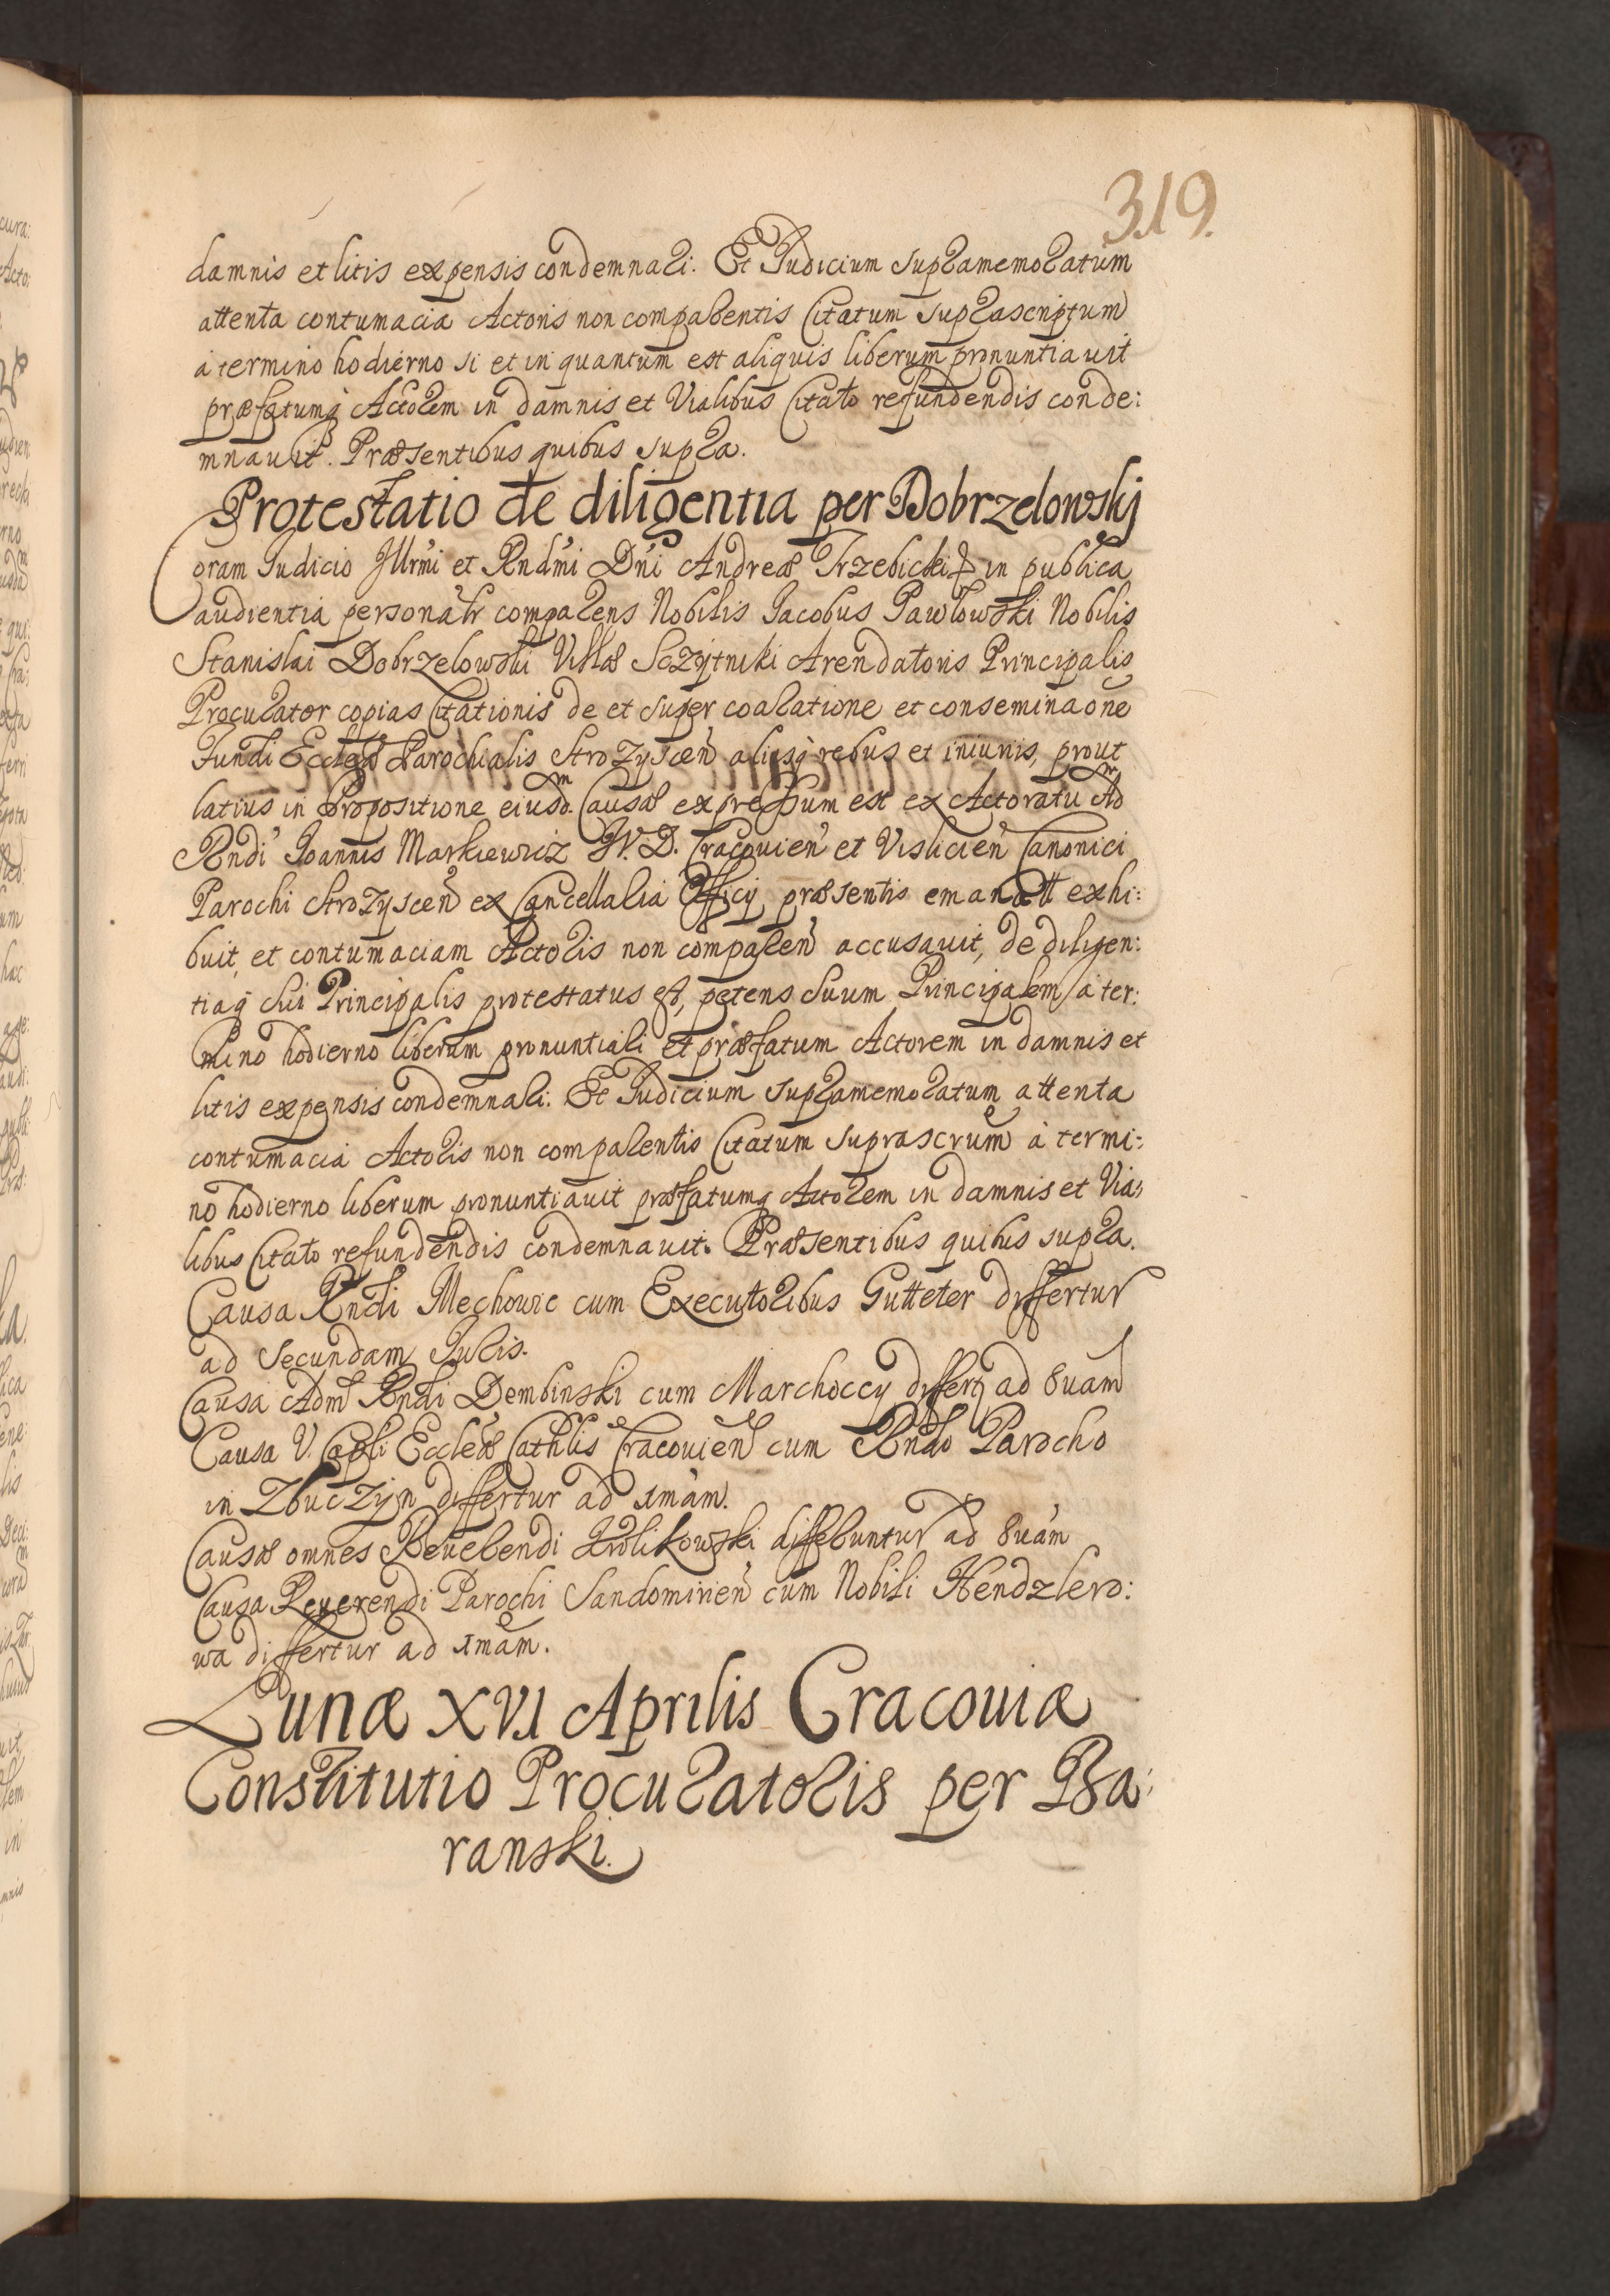 319.
damnis et litis expensis condemnari. Et Judicium supramemoratum
attenta contumacia Actoris non comparentis Citatum suprascriptum
à termino hodierno si et in quantum est aliquis liberum pronuntiavit
præfatumq Actorem in damnis et Vialibus Citato refundendis conde:
mnavit. Præsentibus quibus supra.
Protestatio de diligentia per Dobrzelowskj
Coram Judicio Jllrmi et Rndmi Dni Andreæ Trzebicki in publica
audientia personalr comparens Nobilis Jacobus Pawlowski Nobilis
Stanislai Dobrzelowski Villæ Sczytniki Arendatoris Principalis
Procurator copias Citationis de et super coaratione et conseminaone
Fundi Ecclæ Parochialis Strozyscen aliisq rebus et iniuriis, prout
latius in Propositione eiusdm Causæ expressum est ex Actoratu Adm
Rndi Joannis Markiewicz JV.D. Cracovien et Vislicien Canonici
Parochi Strozyscen ex Cancellaria Officij præsentis emanatt exhi:
buit, et contumaciam Actoris non comparen accusavit, de diligen:
tiaq sui Principalis protestatus est, petens suum Principalem à ter:
mino hodierno liberum pronuntiari et præfatum Actorem in damnis et
litis expensis condemnari. Et Judicium supramemoratum attenta
contumacia Actoris non comparentis Citatum suprascrum à termi:
no hodierno liberum pronuntiavit præfatumq Actorem in damnis et Via:
libus Citato refundendis condemnavit. Præsentibus quibus supra.
Causa Rndi Mechovie cum Executoribus Gutteter differtur
ad secundam Juris.
Causa Adm Rndi Dembinski cum Marchoccy differt ad 8vam
Causa V. Capli Ecclæ Cathlis Cracovien cum Rndo Parocho
in Zbuczyn differtur ad 1mam.
Causæ omnes Reverendi Krolikowski differuntur ad 8vam
Causa Reverendi Parochi Sandomirien cum Nobili Hendzlero:
wa differtur ad 1mam.
Lunæ XVI Aprilis Cracoviæ
Constitutio Procuratoris per Ba:
ranski.